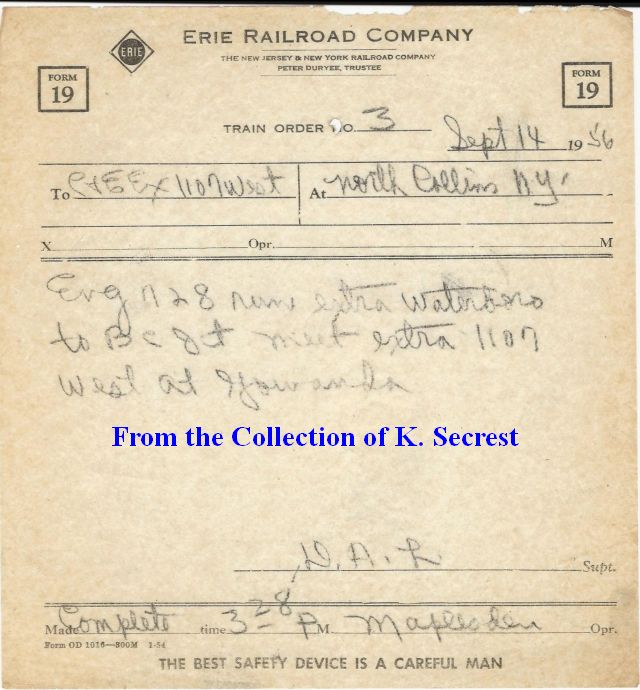 ERIE
ERIE RAILROAD COMPANY
THE NEW JERSEY & NEW YORK RAILROAD COMPANY
PETER DURYEE, TRUSTEE
FORM 19
FORM 19
TRAIN ORDER NO. 3
Sept 14 1956
To C&E Ex 1107 West At North Collins NY.
X Opr. M
Eng 1128 run extra Waterboro
to Bc Jct meet extra 1107
West at Gowanda
From the Collection of K. Secrest
D. A. L Supt.
Made Complete time 3 28 P M. Opr.
Form OD 1016—800M 1-54
THE BEST SAFETY DEVICE IS A CAREFUL MAN